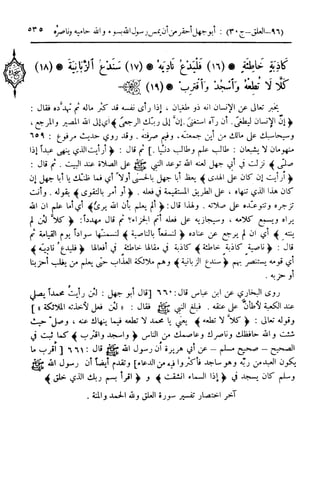 (٩٦ - العلق - ج ٣٠) : أبو جهل أحقر من أن يمس رسول الله بسوء والله حاميه وناصره ٥٣٥
كَاذِبَةٍ خَاطِئَةٍ ﴿١٦﴾ فَلْيَدْعُ نَادِيَهُ ﴿١٧﴾ سَنَدْعُ الزَّبَانِيَةَ ﴿١٨﴾
كَلَّا لَا تُطِعْهُ وَاسْجُدْ وَاقْتَرِب ﴿١٩﴾
يخبر تعالى عن الإنسان أنه ذو طغيان ، إذا رأى نفسه قد كثر ماله ثم تهدده فقال :
﴿ إنَّ الإنسان ليطغى، أن رآه استغنى. إن إلى ربك الرجعى ﴾ إي إلى الله المصير والمرجع ،
وسيحاسبك على مالك من أين جمعته، وفيم صرفته . وقد روي حديث مرفوع : ٦٥٩
منهومان لا يشبعان : طالب علم وطالب دنيا . ] ثم قال : ﴿ أرأيت الذي ينهى عبداً إذا
صلى ﴾ نزلت في أبي جهل لعنه الله توعد النبي ﷺ على الصلاة عند البيت . ثم قال :
﴿ أرأيت إن كان على الهدى ﴾ يعظ أبا جهل بالحسنى أولاً أي فما ظنك يا أبا جهل إن
كان هذا الذي تنهاه ، على الطريق المستقيمة في فعله . ﴿ أو أمر بالتقوى ﴾ بقوله . وأنت
تزجره وتتوعده على صلاته . ولهذا قال: ﴿ ألم يعلم بأن الله يرى ﴾ أي أما علم أن الله
يراه ويسمع كلامه ، وسيجازيه على فعله أتم الجزاء؟ ثم قال مهدداً: ﴿ كلا لئن لم
ينته ﴾ أي إن لم يرجع عن عناده ﴿ لنسفعاً بالناصية ﴾ لنسمنّها سواداً يوم القيامة ثم
قال : ﴿ ناصية كاذبة خاطئة ﴾ كاذبة في مقالها خاطئة في أفعالها ﴿ فليدع ناديه ﴾
أي قومه يستنصر بهم ﴿ سندع الزبانية ﴾ وهم ملائكة العذاب حتى يعلم من يغلب أحزبنا
أو حزبه .
روى البخاري عن ابن عباس قال: ٦٦٠ [قال أبو جهل : لئن رأيت محمداً يصلي
عند الكعبة لأطأنَّ على عنقه . فبلغ النبي ﷺ فقال : « لئن فعل لأخذته الملائكة » ]
وقوله تعالى : ﴿ كلا لا تطعه ﴾ يعني يا محمد لا تطعه فيما ينهاك عنه ، وصلِّ حيث
شئت والله حافظك وناصرك وعاصمك من الناس ﴿ واسجد واقترب ﴾ كما ثبت في
الصحيح – صحيح مسلم – عن أبي هريرة أن رسول الله ﷺ قال: ٦٦١ [ أقرب ما
يكون العبد من ربِّه وهو ساجد فأكثروا فيه من الدعاء] وتقدم أيضاً أن رسول الله ﷺ
وسلم كان يسجد في ﴿ إذا السماء انشقت ﴾ و ﴿ اقرأ بسم ربك الذي خلق ﴾
آخر اختصار تفسير سورة العلق ولله الحمد والمنة .